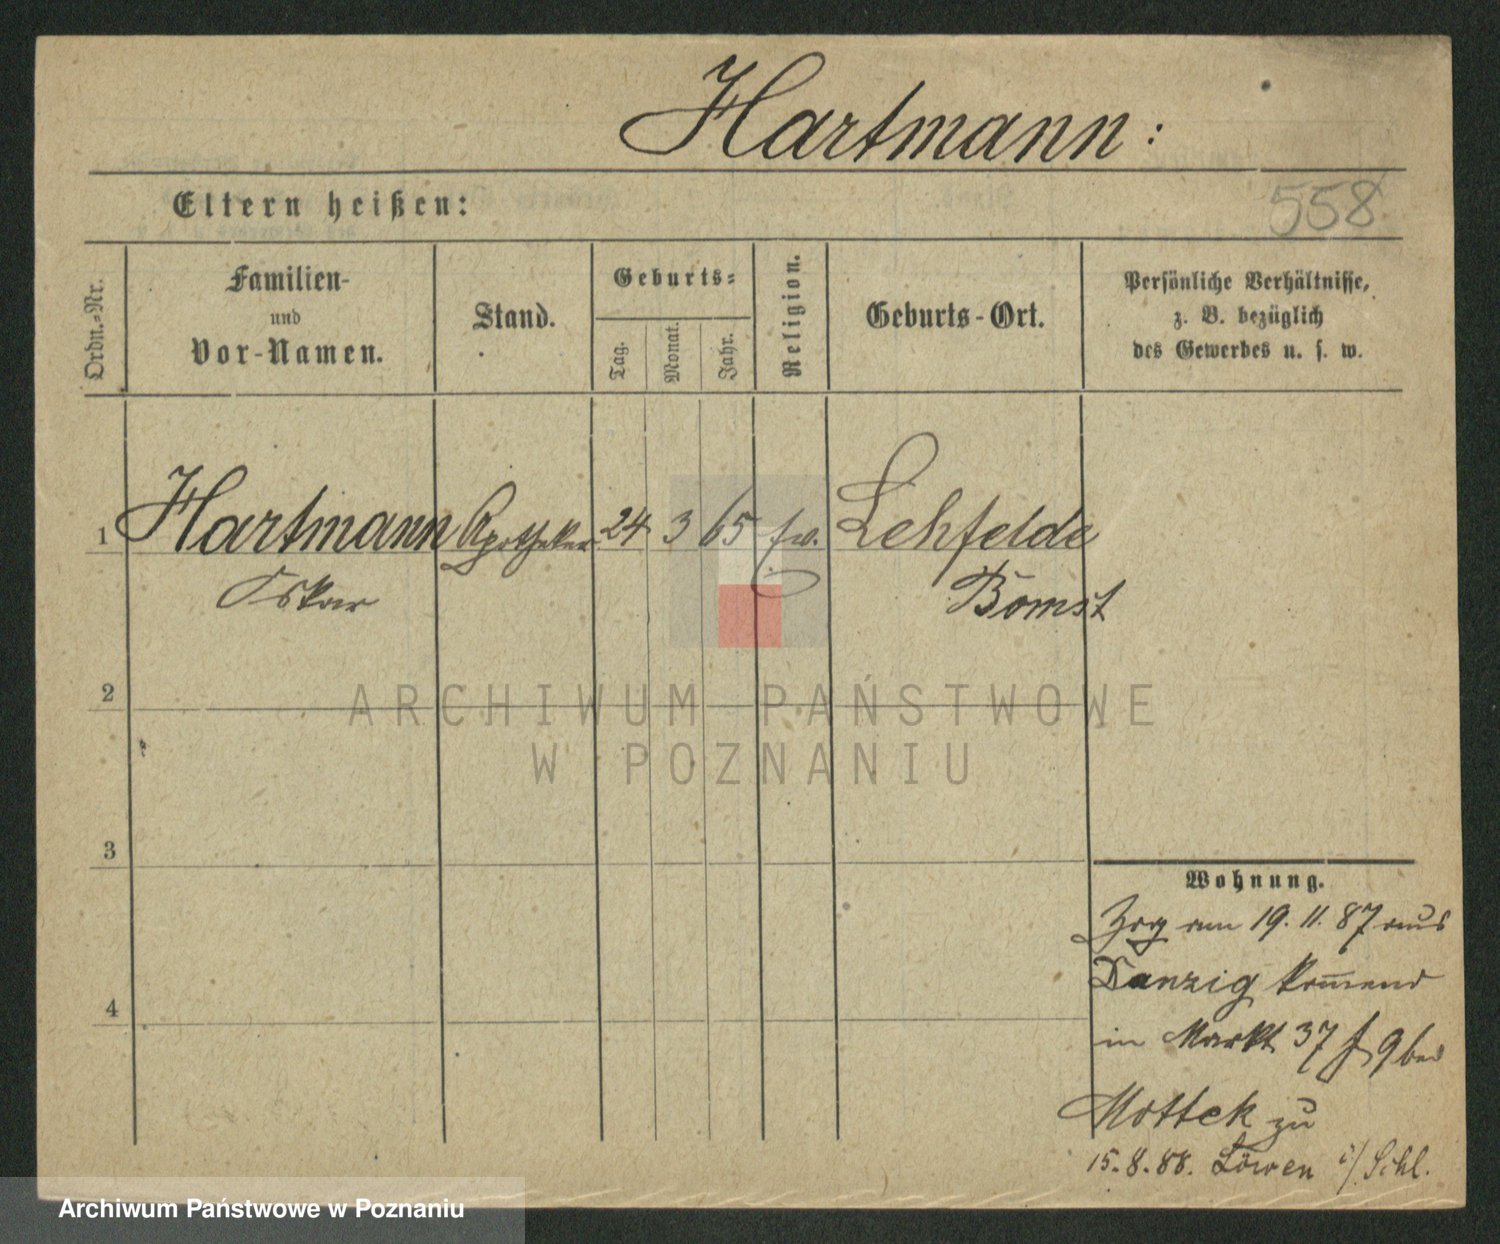 Hartmann:
Eltern heißen:
558
Ordn.-Nr.
Familien-
und
Vor-Namen.
Stand.
Geburts-
Tag.
Monat.
Jahr.
Religion.
Geburts-Ort.
Persönliche Verhältnisse,
z. B. bezüglich
des Gewerbes u. s. w.
1 Hartmann Apotheker 24 3 65 Lehfelde
Oskar Bomst
2
ARCHIWUM PAŃSTWOWE
W POZNANIU
3
4
Wohnung.
Zog am 19. 11. 87 aus
Danzig kom̅end
in Markt 37 9 bei
Mottek zu
15. 8. 88. Löwen i/Schl.
Archiwum Państwowe w Poznaniu